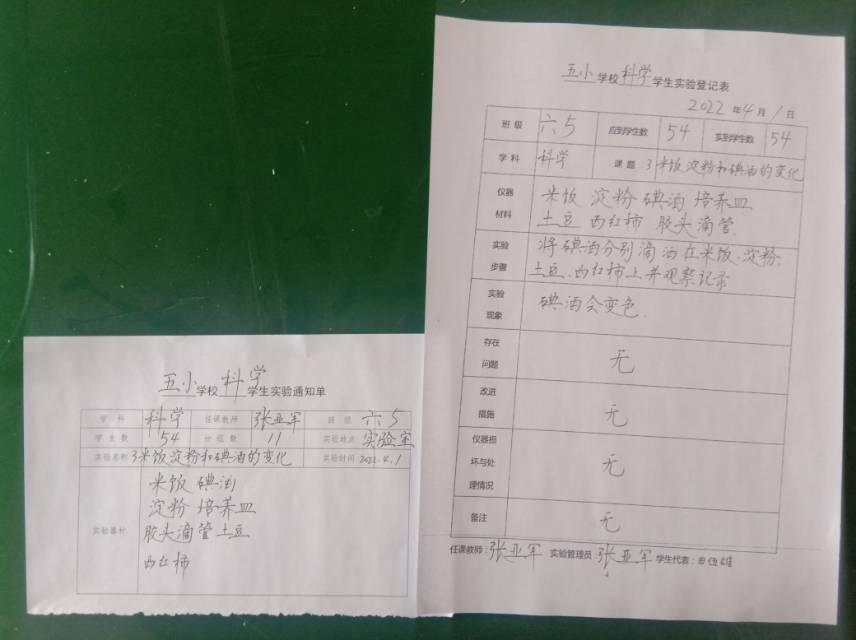 五小学校科学学生实验登记表
2022年4月1日
班级 六5 应到学生数 54 实到学生数 54
学科 科学 课题 3米饭淀粉和碘酒的变化
仪器材料
米饭 淀粉 碘酒 培养皿
土豆 西红柿 胶头滴管
实验步骤
将碘酒分别滴洒在米饭、淀粉、
土豆、西红柿上并观察记录
实验现象
碘酒会变色.
存在问题 无
改进措施 无
仪器损坏与处理情况 无
备注 无
任课教师:张亚军 实验管理员:张亚军 学生代表:田
五小学校科学学生实验通知单
学科 科学 任课教师 张亚军 班级 六5
学生数 54 分组数 11 实验地点 实验室
实验名称 3米饭淀粉和碘酒的变化 实验时间 2022.4.1
实验器材
米饭 碘酒
淀粉 培养皿
胶头滴管 土豆
西红柿